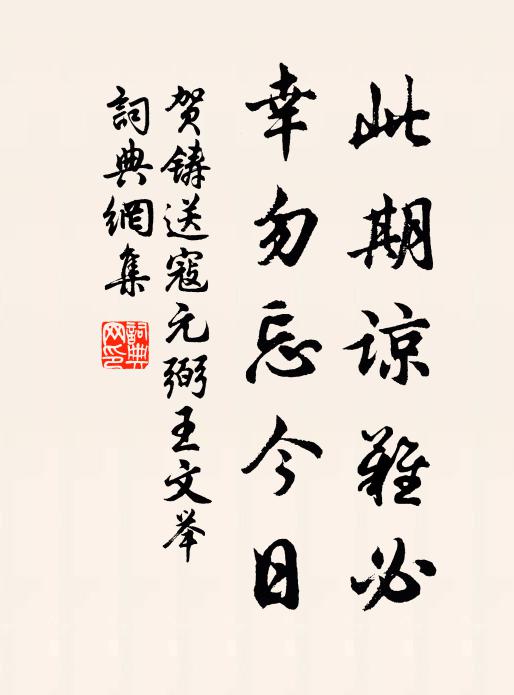 此期谅難必
幸勿忘今日
贺鑄送寇元弼王文举
詞典網集
詞典网印